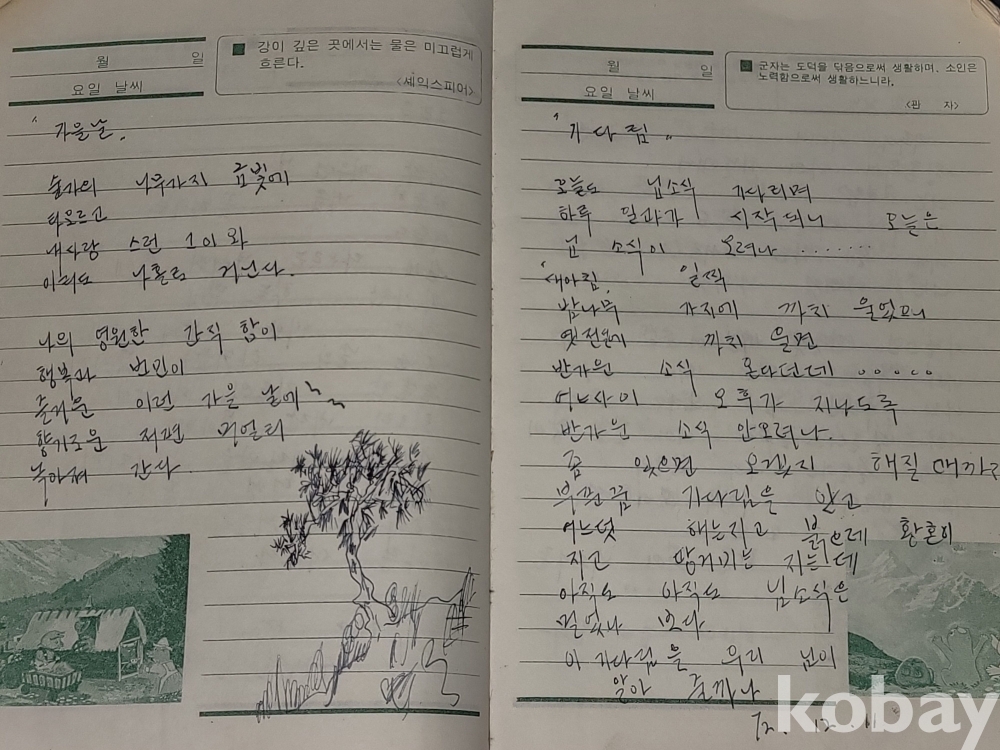 월 일
요일 날씨
강이 깊은 곳에서는 물은 미끄럽게
흐른다.
<셰익스피어>
"가을날"
숲가의 나무가지 금빛에
타오르고
내사랑 스런 그이와
이리도 나홀로 거닌다.
나의 영원한 간직 함이
행복과 번민이
즐거운 이런 가을 날에
향기로운 저편 머얼리
녹아져 간다
월 일
요일 날씨
군자는 도덕을 닦음으로써 생활하며, 소인은
노력함으로써 생활하느니라.
<관 자>
"기다림"
오늘도 님소식 기다리며
하루 일과가 시작되니 오늘은
님 소식이 오려나 ........
새아침, 일찍
밤나무 가지에 까치 울었으니
옛전언에 까치 울면
반가운 소식 온다던데 .....
어느사이 오후가 지나도록
반가운 소식 안오려나.
좀 있으면 오겠지 해질때까지
부푼꿈 기다림을 안고
어느덧 해는지고 붉으레 황혼이
지고 땅거미는 지는데
아직도 아직도 님소식은
멀었나 보다
이 기다림을 우리 님이
알아 줄까나
72. 12. 11
kobay